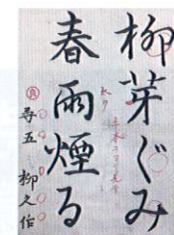 柳芽ぐみ
春雨煙る
尋五 柳久作